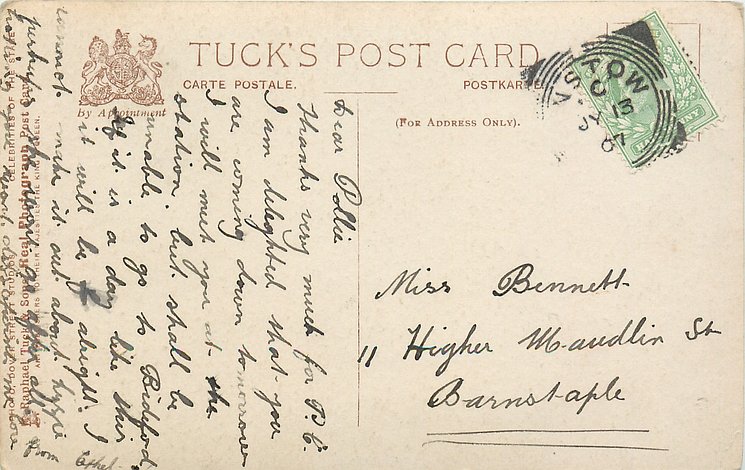 TUCK'S POST CARD
CARTE POSTALE.
POSTKARTE
By Appointment
(FOR ADDRESS ONLY).
STOW
C
13
07
Miss Bennett
11 Higher Maudlin St
Barnstaple
Dear Pollie
Thanks very much for P.C.
I am delighted that you
are coming down tomorrow
I will meet you at the
station but shall be
unable to go to Bideford
If it is a day like this
it will be alright. I
cannot make it out about Lizzie
perhaps
from Ethel
Raphael Tuck & Sons "Real Photograph" Post Card
CELEBRITIES OF THE STAGE
THEIR MAJESTIES THE KING & QUEEN.